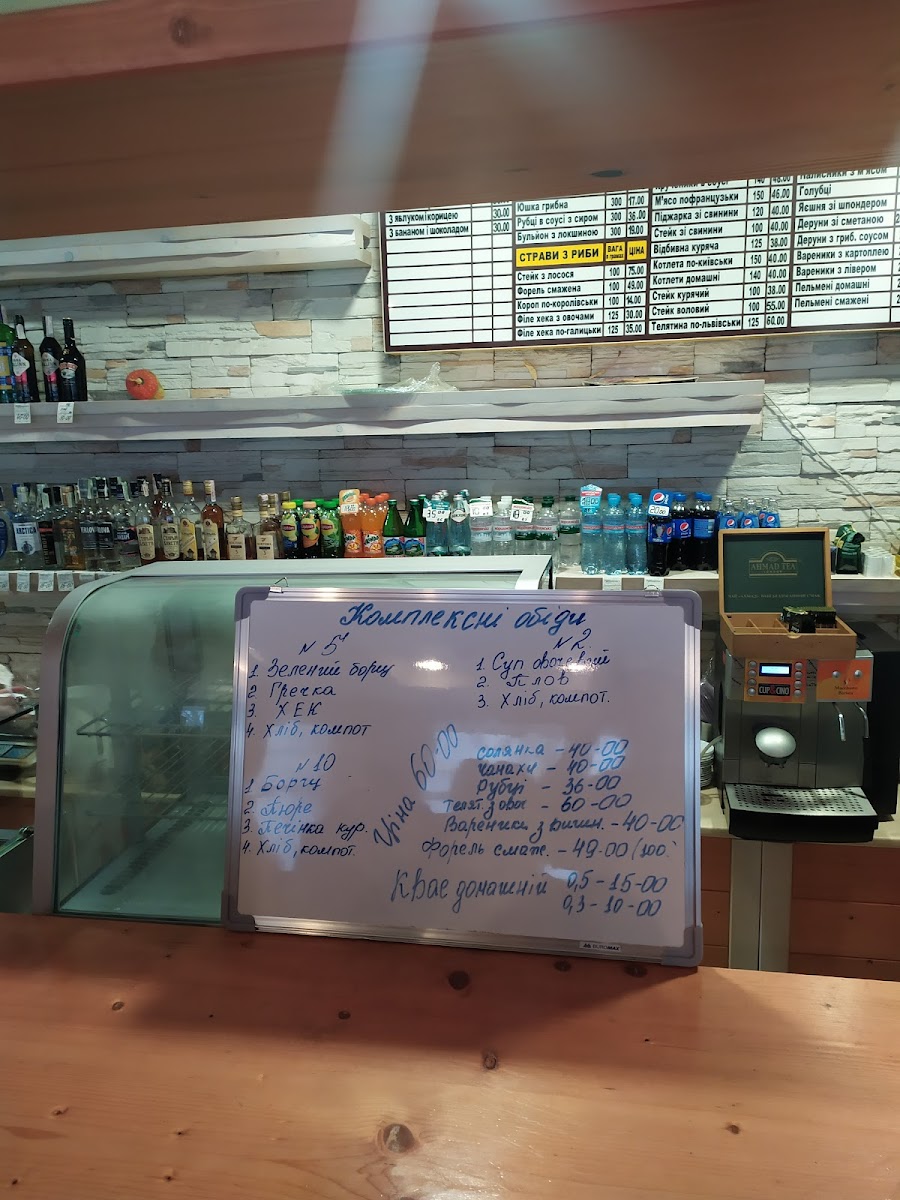 З яблуком і корицею 30.00
З бананом і шоколадом 30.00
Юшка грибна 300 17.00
Рубці в соусі з сиром 300 36.00
Бульйон з локшиною 300 19.00
СТРАВИ З РИБИ ВАГА в грамах ЦІНА
Стейк з лосося 100 75.00
Форель смажена 100 49.00
Короп по-королівськи 100 14.00
Філе хека з овочами 125 30.00
Філе хека по-галицьки 125 35.00
Крученики в соусі 140 48.00
М'ясо пофранцузьки 150 46.00
Піджарка зі свинини 120 40.00
Стейк зі свинини 100 40.00
Відбивна куряча 125 38.00
Котлета по-київськи 150 40.00
Котлети домашні 140 40.00
Стейк курячий 100 38.00
Стейк воловий 100 55.00
Телятина по-львівськи 125 60.00
Налисники з м'ясом
Голубці
Яєшня зі шпондером
Деруни зі сметаною
Деруни з гриб. соусом
Вареники з картоплею
Вареники з лівером
Пельмені домашні
Пельмені смажені
20.00
AHMAD TEA
CUP&CINO
Комплексні обіди
N 5
1. Зелений борщ
2 Гречка
3. ХЕК
4. Хліб, компот
N 2
1. Суп овочевий
2. Плов
3. Хліб, компот.
N 10
1 Борщ
2. Пюре
3. Печінка кур.
4. Хліб, компот.
Ціна 60-00
солянка - 40-00
чанахи - 40-00
Рубці - 36-00
Телят. з овоч - 60-00
Вареники з вишн. - 40-00
Форель смаж. - 49-00 (100)
Квас домашній 0,5 - 15-00
0,3 - 10-00
BUROMAX